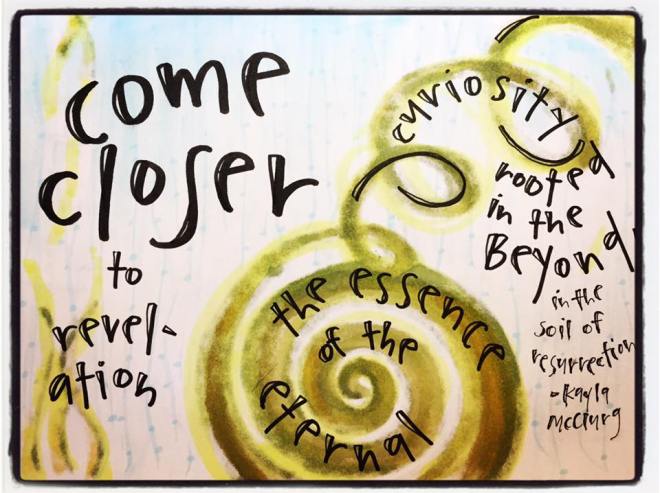 come
closer
to
revel-
ation
the essence
of the
eternal
curiosity
rooted
in the
Beyond
in the
soil of
resurrection
- Kayla
McClurg